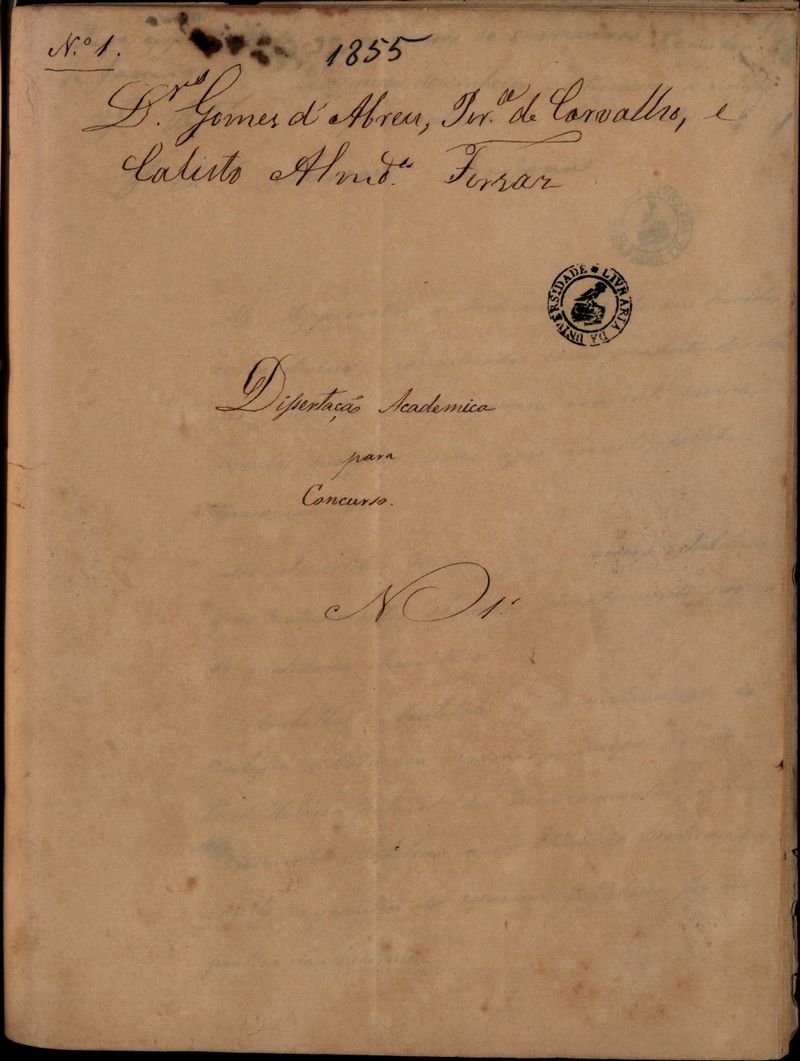 N.º 1.
1855
D.res Gomes d'Abreu, Fer.ª de Carvalho, e
Calisto Almd.es Ferraz
UNIVERSIDADE * LIVRARIA DA
Dissertação Academica
para
Concurso.
N 1.